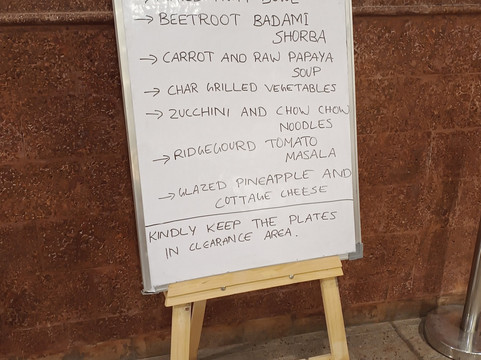 → BEETROOT BADAMI
SHORBA
→ CARROT AND RAW PAPAYA
SOUP
→ CHAR GRILLED VEGETABLES
→ ZUCCHINI AND CHOW CHOW
NOODLES
→ RIDGEGOURD TOMATO
MASALA
→ GLAZED PINEAPPLE AND
COTTAGE CHEESE
KINDLY KEEP THE PLATES
IN CLEARANCE AREA.